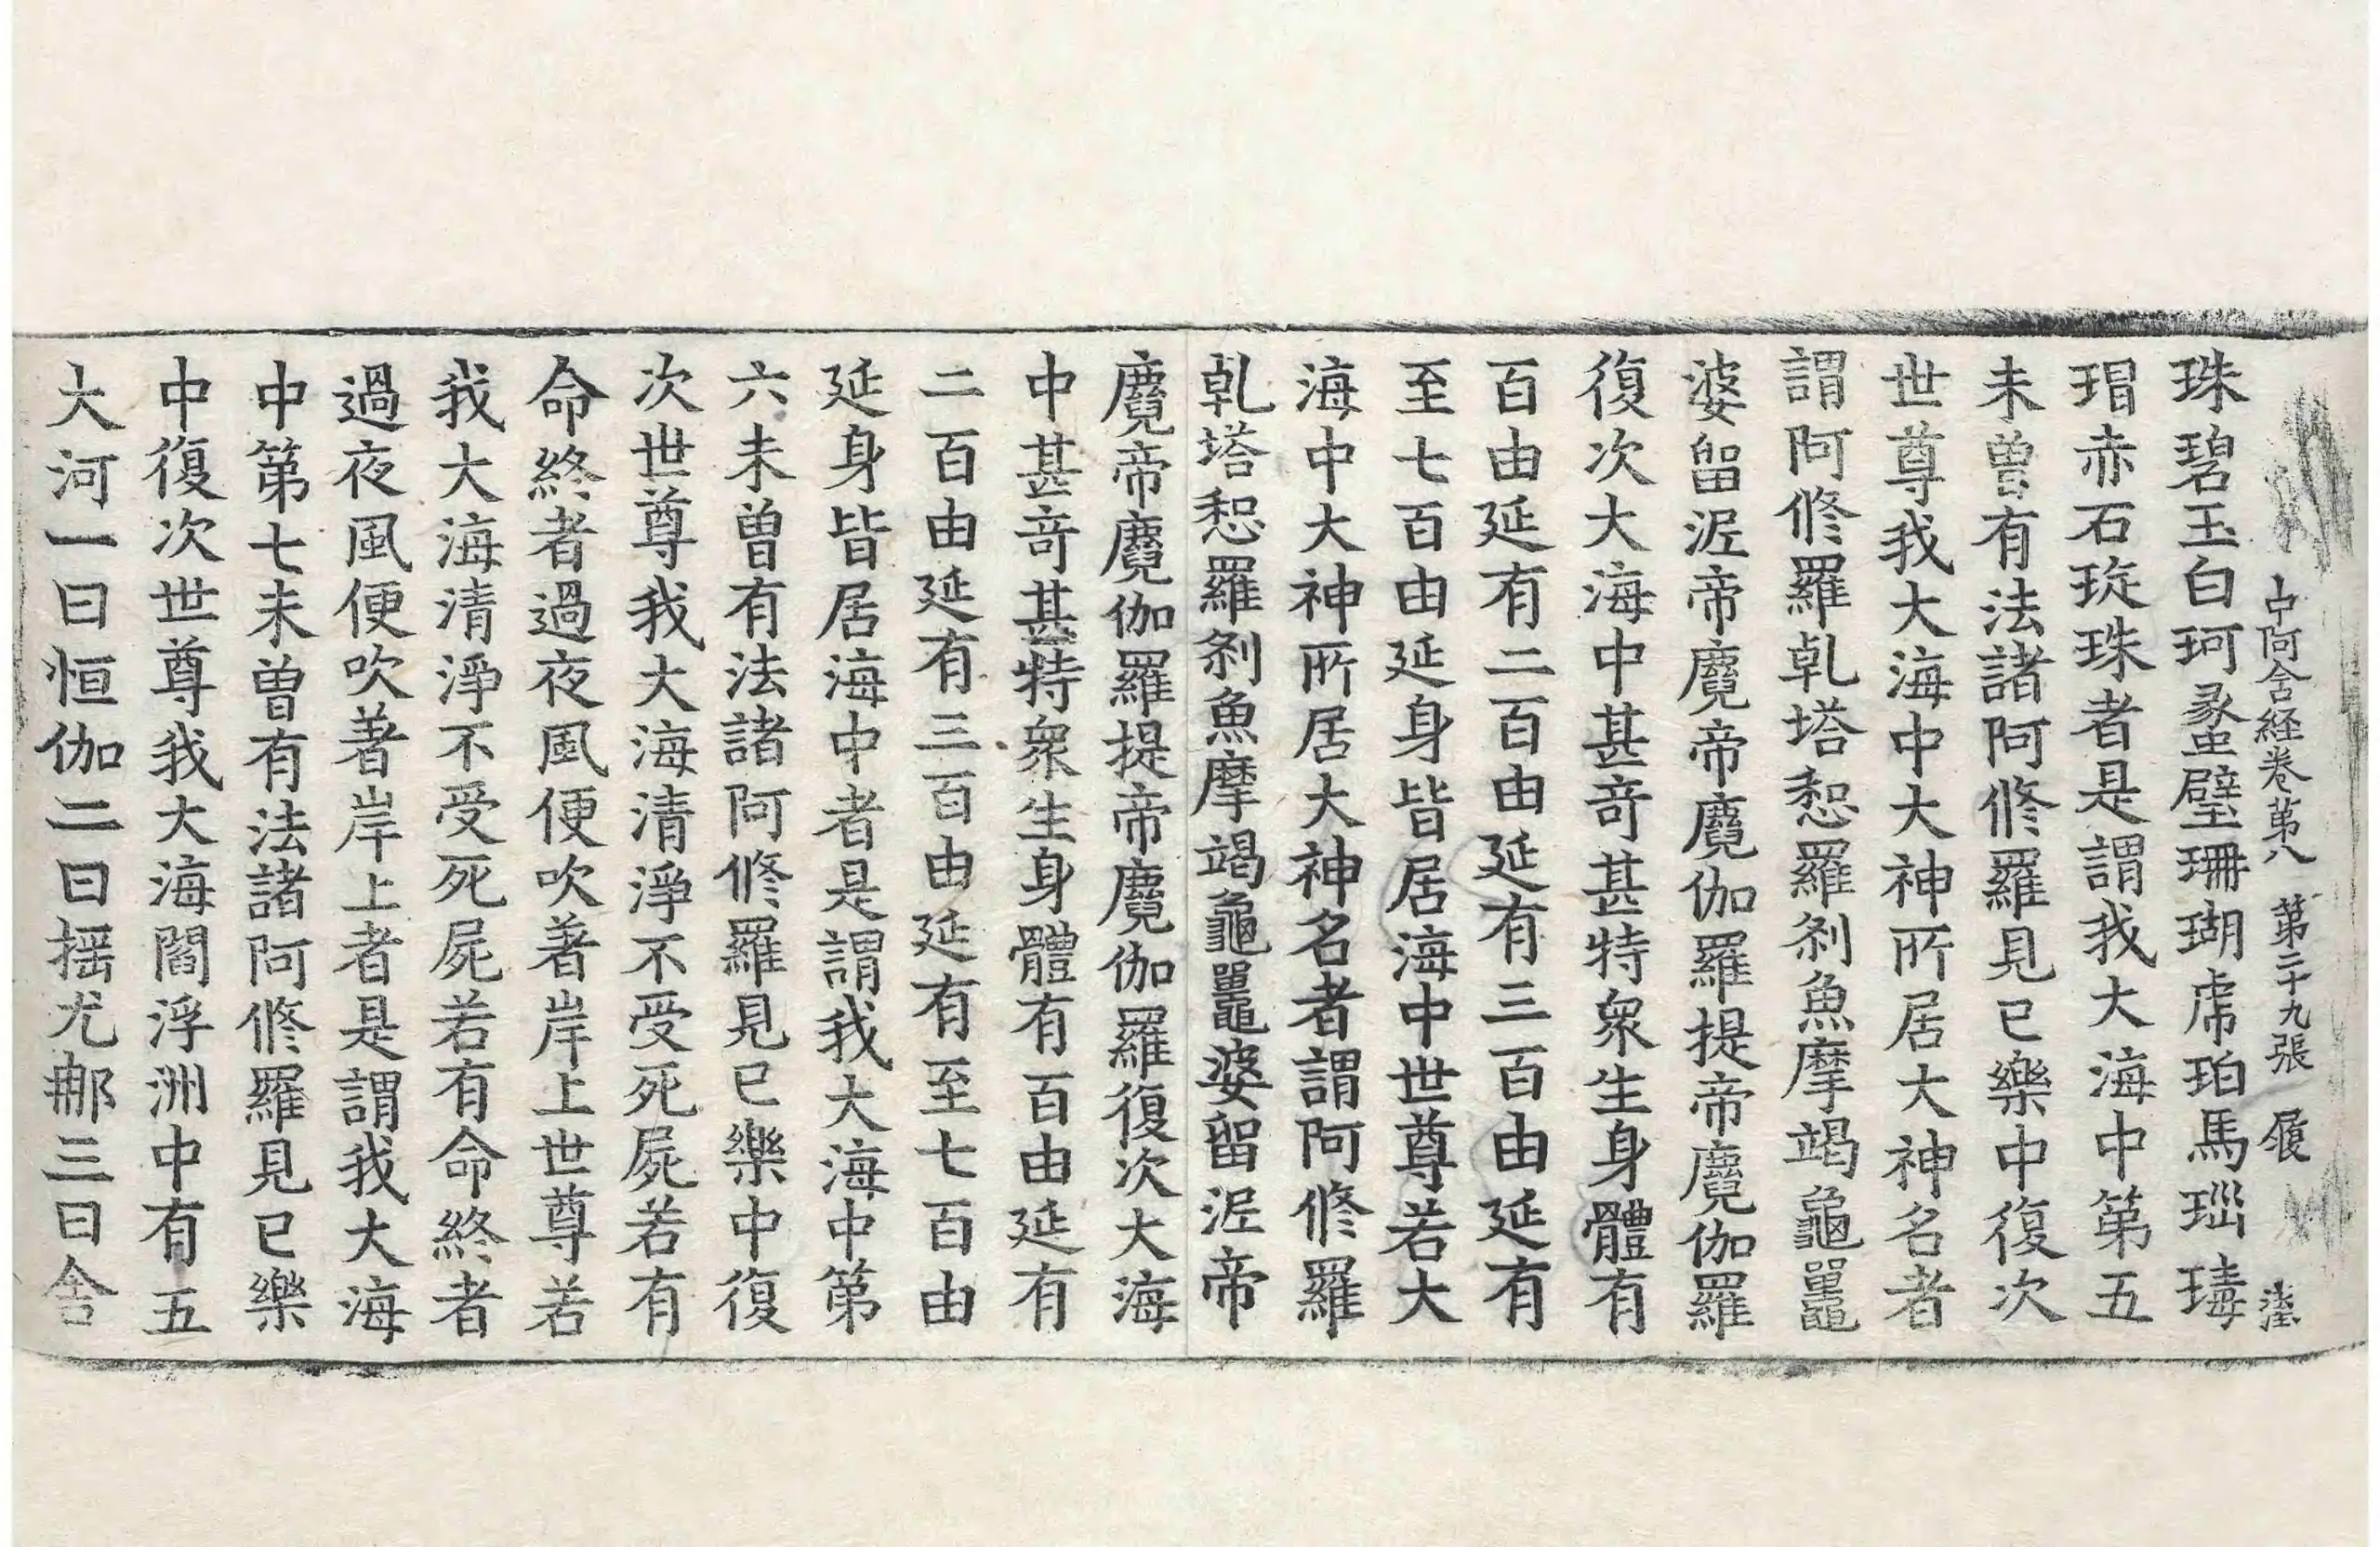 中阿含経卷苐八 苐二十九張 履
珠碧玉白珂䗍璧珊瑚虎珀馬瑙瑇
瑁赤石琁珠者是謂我大海中苐五
未曽有法諸阿修羅見已樂中復次
世尊我大海中大神所居大神名者
謂阿修羅乹塔惒羅刹魚摩竭龜鼉
婆留泥帝麑帝麑伽羅提帝麑伽羅
復次大海中甚竒甚特衆生身體有
百由延有二百由延有三百由延有
至七百由延身皆居海中世尊若大
海中大神所居大神名者謂阿修羅
乹塔惒羅刹魚摩竭龜鼉婆留泥帝
麑帝麑伽羅提帝麑伽羅復次大海
中甚竒甚特衆生身體有百由延有
二百由延有三百由延有至七百由
延身皆居海中者是謂我大海中苐
六未曽有法諸阿修羅見已樂中復
次世尊我大海清淨不受死屍若有
命終者過夜風便吹著岸上世尊若
我大海清淨不受死屍若有命終者
過夜風便吹著岸上者是謂我大海
中苐七未曽有法諸阿修羅見已樂
中復次世尊我大海閻浮洲中有五
大河一曰恒伽二曰揺尤那三曰舎